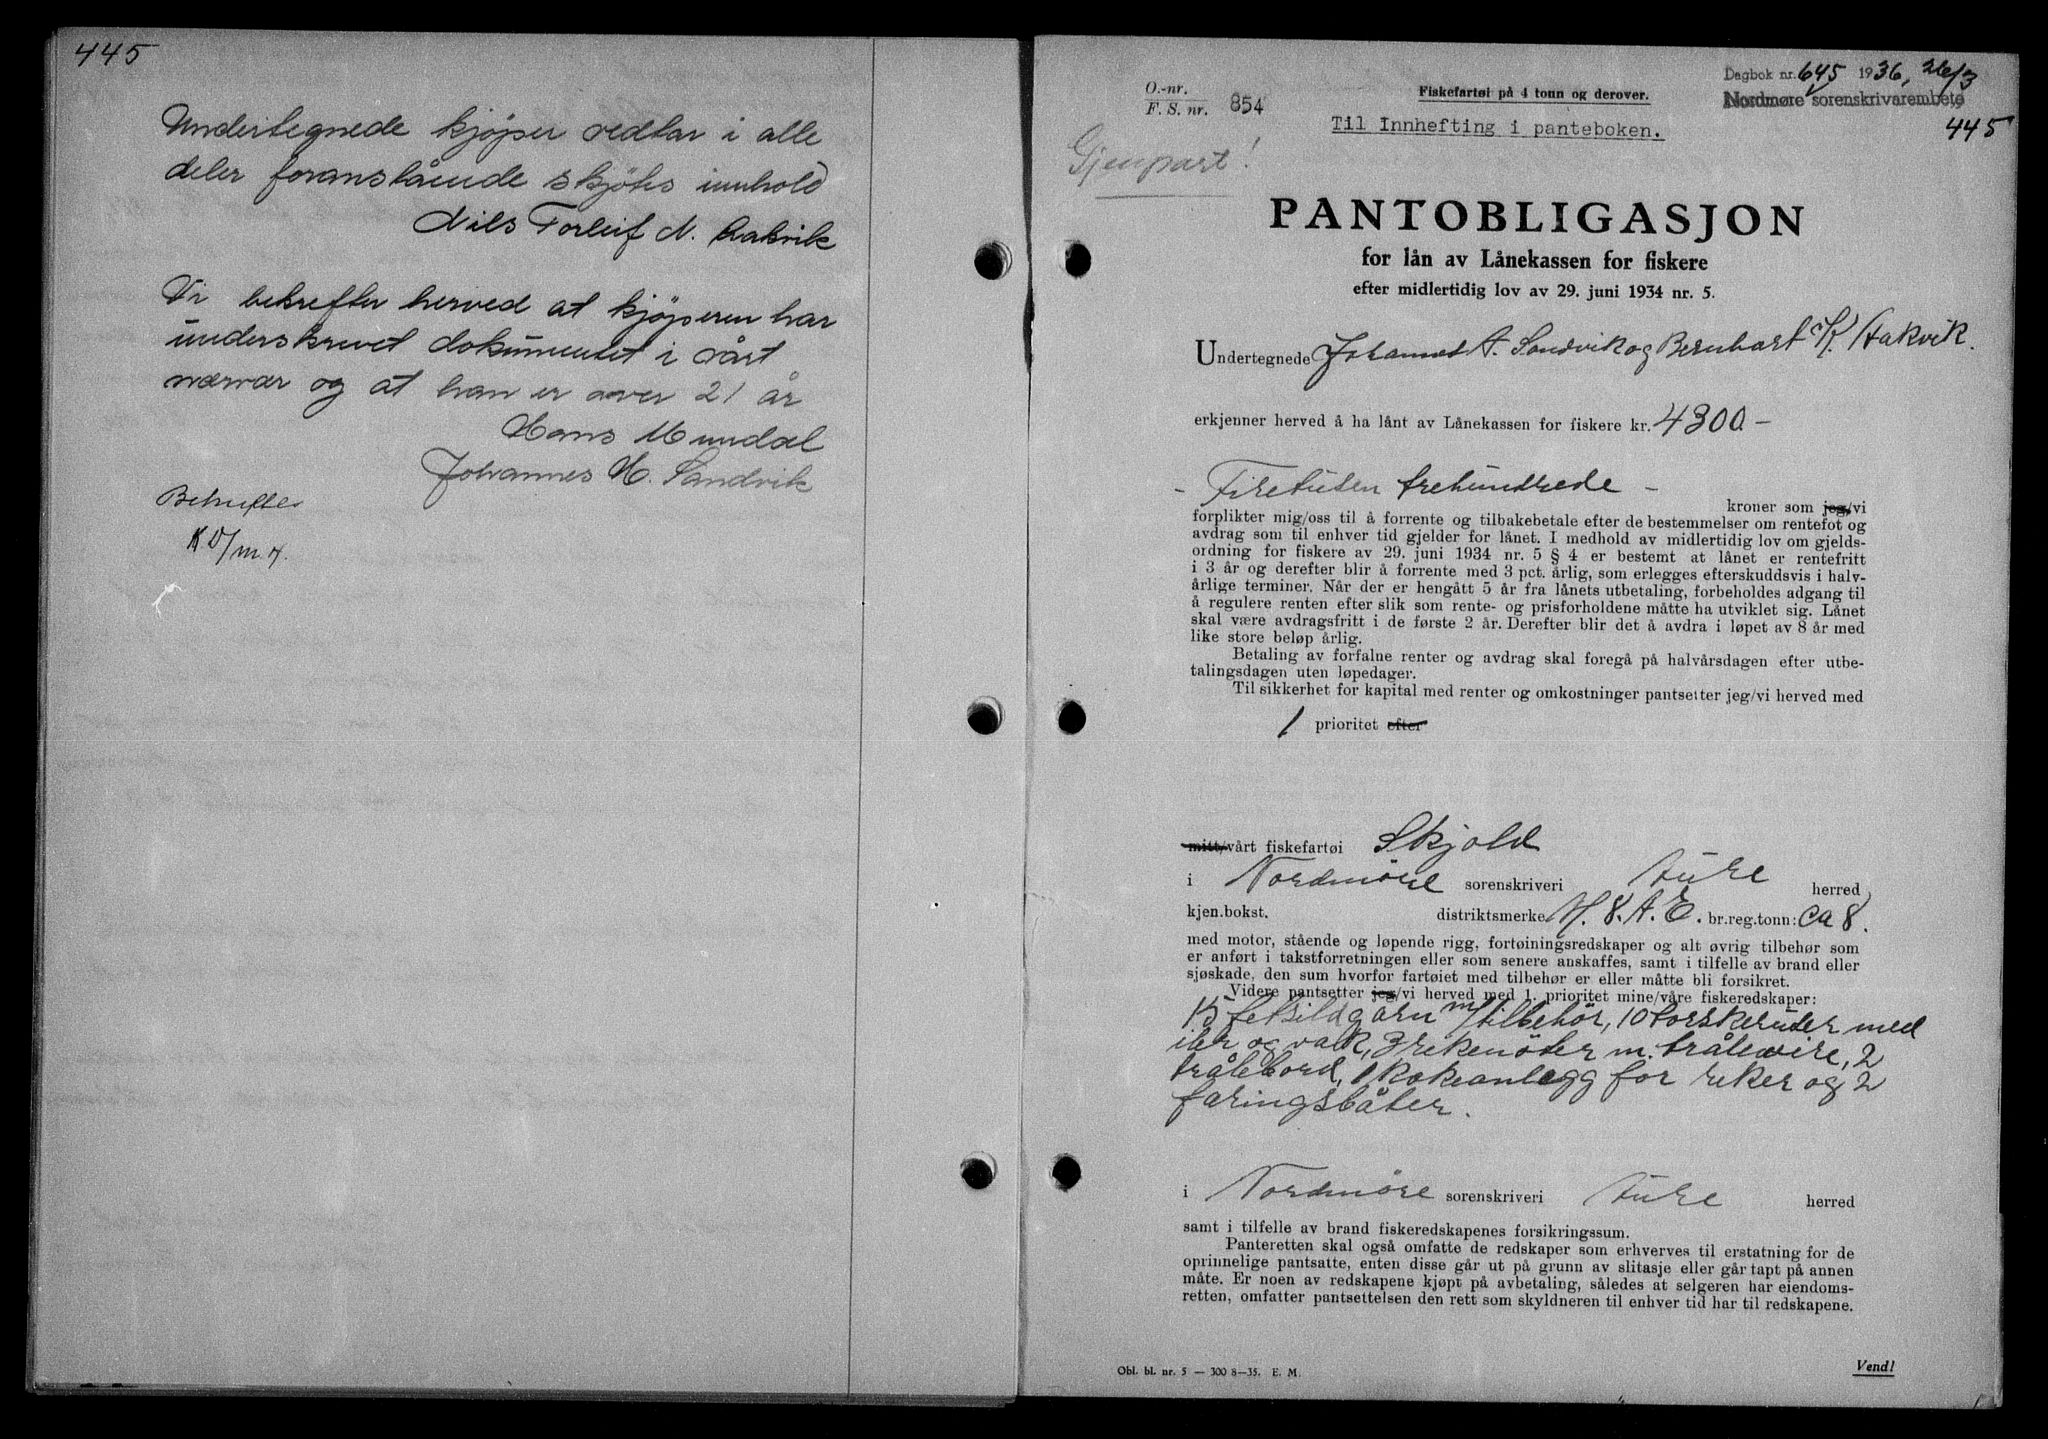 445
Undertegnede kjöper vedtar i alle
deler foranstående skjötes innhold
Nils Torleif N. Aakvik
Vi bekrefter herved at kjöperen har
underskrevet dokumentet i vårt
nærvær og at han er over 21 år
Hans Mundal
Johannes H. Sandvik
Bekreftes
Dagbok nr. 645 1936, 26/3
Nordmøre sorenskrivarembete
445
O.-nr.
F. S. nr. 854
Fiskefartøi på 4 tonn og derover.
Til Innhefting i panteboken.
Gjenpart!
PANTOBLIGASJON
for lån av Lånekassen for fiskere
efter midlertidig lov av 29. juni 1934 nr. 5.
Undertegnede Johannes A. Sandvik og Bernhart K. Aakvik.
erkjenner herved å ha lånt av Lånekassen for fiskere kr. 4300.-
- Firetusen trehundrede -
kroner som jeg/vi
forplikter mig/oss til å forrente og tilbakebetale efter de bestemmelser om rentefot og
avdrag som til enhver tid gjelder for lånet. I medhold av midlertidig lov om gjelds-
ordning for fiskere av 29. juni 1934 nr. 5 § 4 er bestemt at lånet er rentefritt
i 3 år og derefter blir å forrente med 3 pct. årlig, som erlegges efterskuddsvis i halv-
årlige terminer. Når der er hengått 5 år fra lånets utbetaling, forbeholdes adgang til
å regulere renten efter slik som rente- og prisforholdene måtte ha utviklet sig. Lånet
skal være avdragsfritt i de første 2 år. Derefter blir det å avdra i løpet av 8 år med
like store beløp årlig.
Betaling av forfalne renter og avdrag skal foregå på halvårsdagen efter utbe-
talingsdagen uten løpedager.
Til sikkerhet for kapital med renter og omkostninger pantsetter jeg/vi herved med
1 prioritet efter
mitt/vårt fiskefartøi Skjold
i Nordmöre sorenskriveri Aure herred
kjen.bokst. distriktsmerke M. 8. A. E. br.reg.tonn: ca 8.
med motor, stående og løpende rigg, fortøiningsredskaper og alt øvrig tilbehør som
er anført i takstforretningen eller som senere anskaffes, samt i tilfelle av brand eller
sjøskade, den sum hvorfor fartøiet med tilbehør er eller måtte bli forsikret.
Videre pantsetter jeg/vi herved med 1. prioritet mine/våre fiskeredskaper:
15 fetsildgarn m/tilbehör, 10 torskeruser med
iler og vak, 3 rekenöter m. trålewire, 2
trålebord, 1 kokeanlegg for reker og 2
færingsbåter.
i Nordmöre sorenskriveri Aure herred
samt i tilfelle av brand fiskeredskapenes forsikringssum.
Panteretten skal også omfatte de redskaper som erhverves til erstatning for de
oprinnelige pantsatte, enten disse går ut på grunn av slitasje eller går tapt på annen
måte. Er noen av redskapene kjøpt på avbetaling, således at selgeren har eiendoms-
retten, omfatter pantsettelsen den rett som skyldneren til enhver tid har til redskapene.
Obl. bl. nr. 5 — 300 8-35. E. M.
Vend!